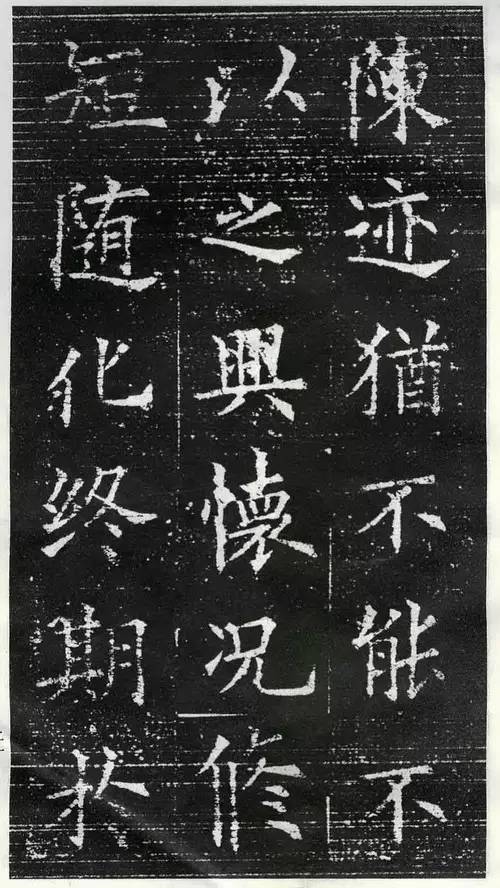 陳迹猶不能不
以之興懷况修
短随化终期於